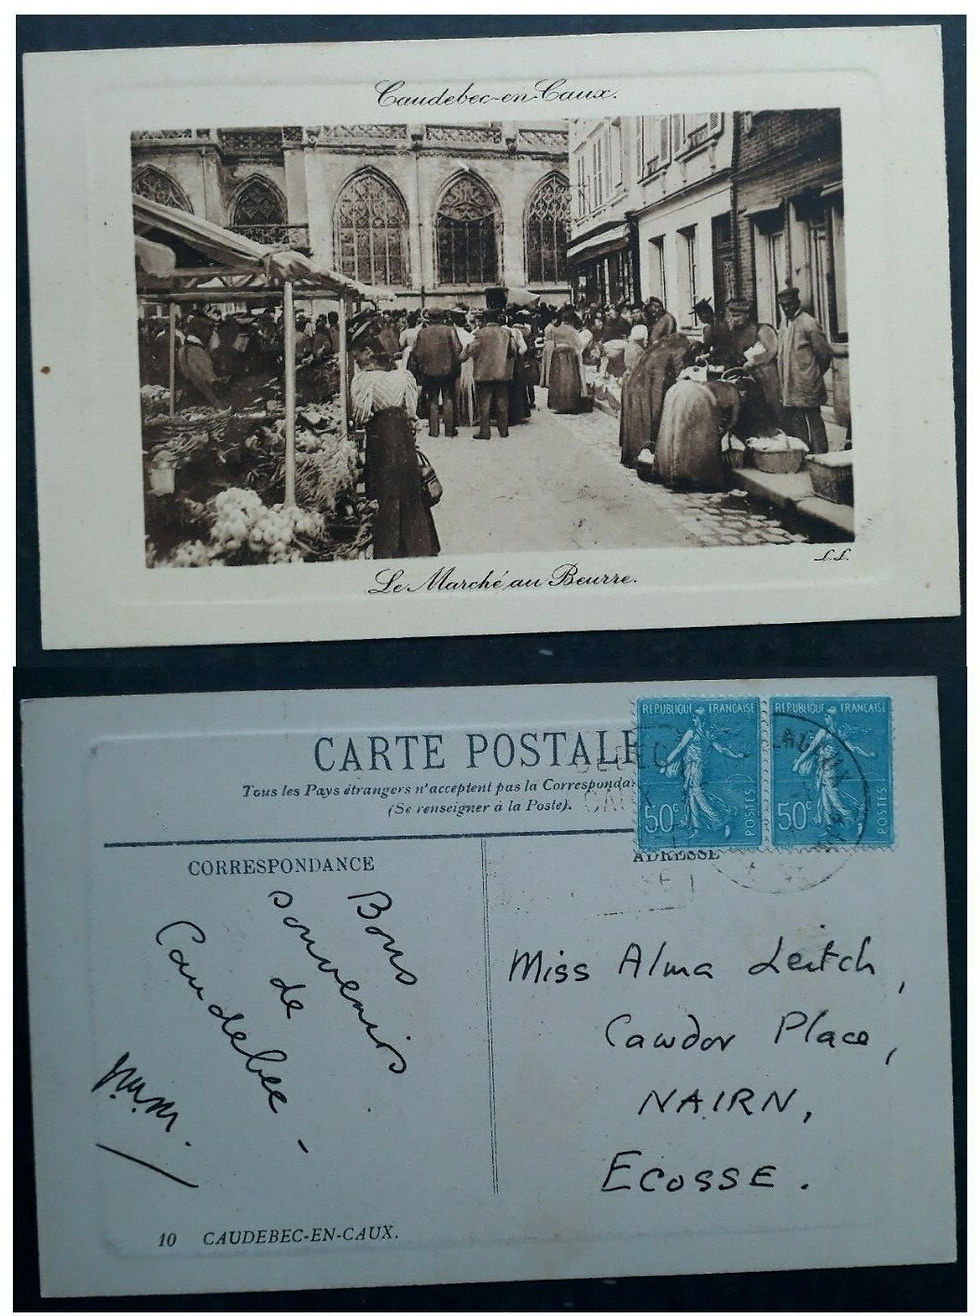 Caudebec-en-Caux.
Le Marché au Beurre.
LL.
CARTE POSTALE
Tous les Pays étrangers n'acceptent pas la Correspondan
(Se renseigner à la Poste).
REPUBLIQUE FRANÇAISE
50c
POSTES
REPUBLIQUE FRANÇAISE
50c
POSTES
CORRESPONDANCE
ADRESSE
Bons
souvenirs
de
Caudebec -
Miss Alma Leitch,
Cawdor Place,
NAIRN,
ECOSSE.
10 CAUDEBEC-EN-CAUX.